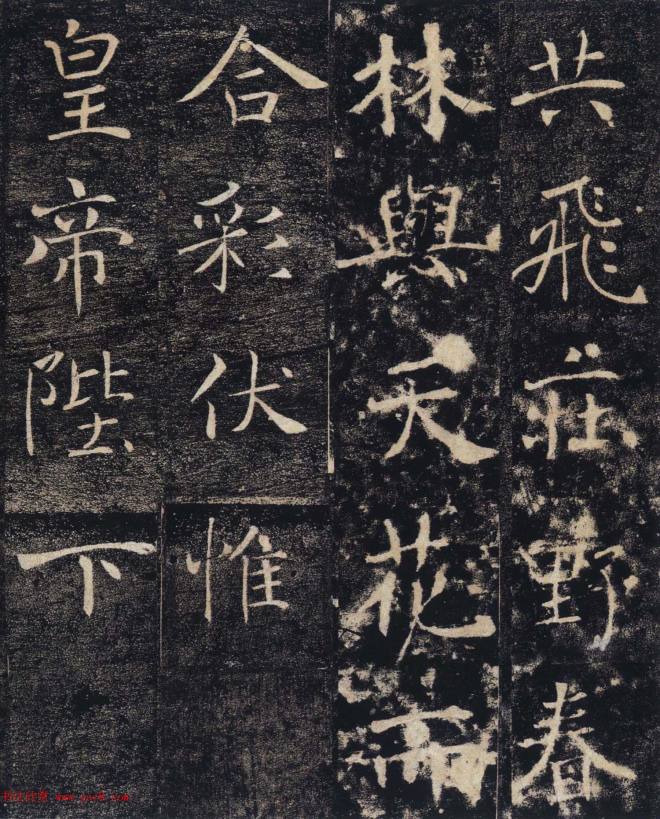 共飛莊野春
林與天花而
合彩伏惟
皇帝陛下
www.yac8.com